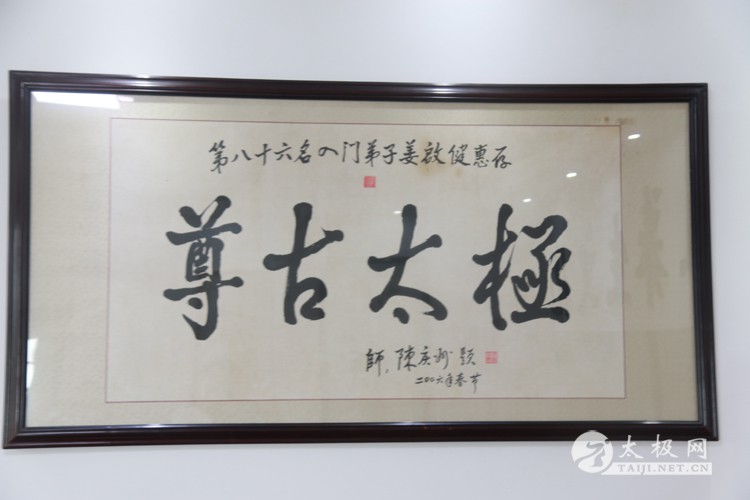 第八十六名入门弟子姜啟俊惠存
尊古太極
師．陳庆州題
二〇〇六年春节
太极网
TAIJI.NET.CN